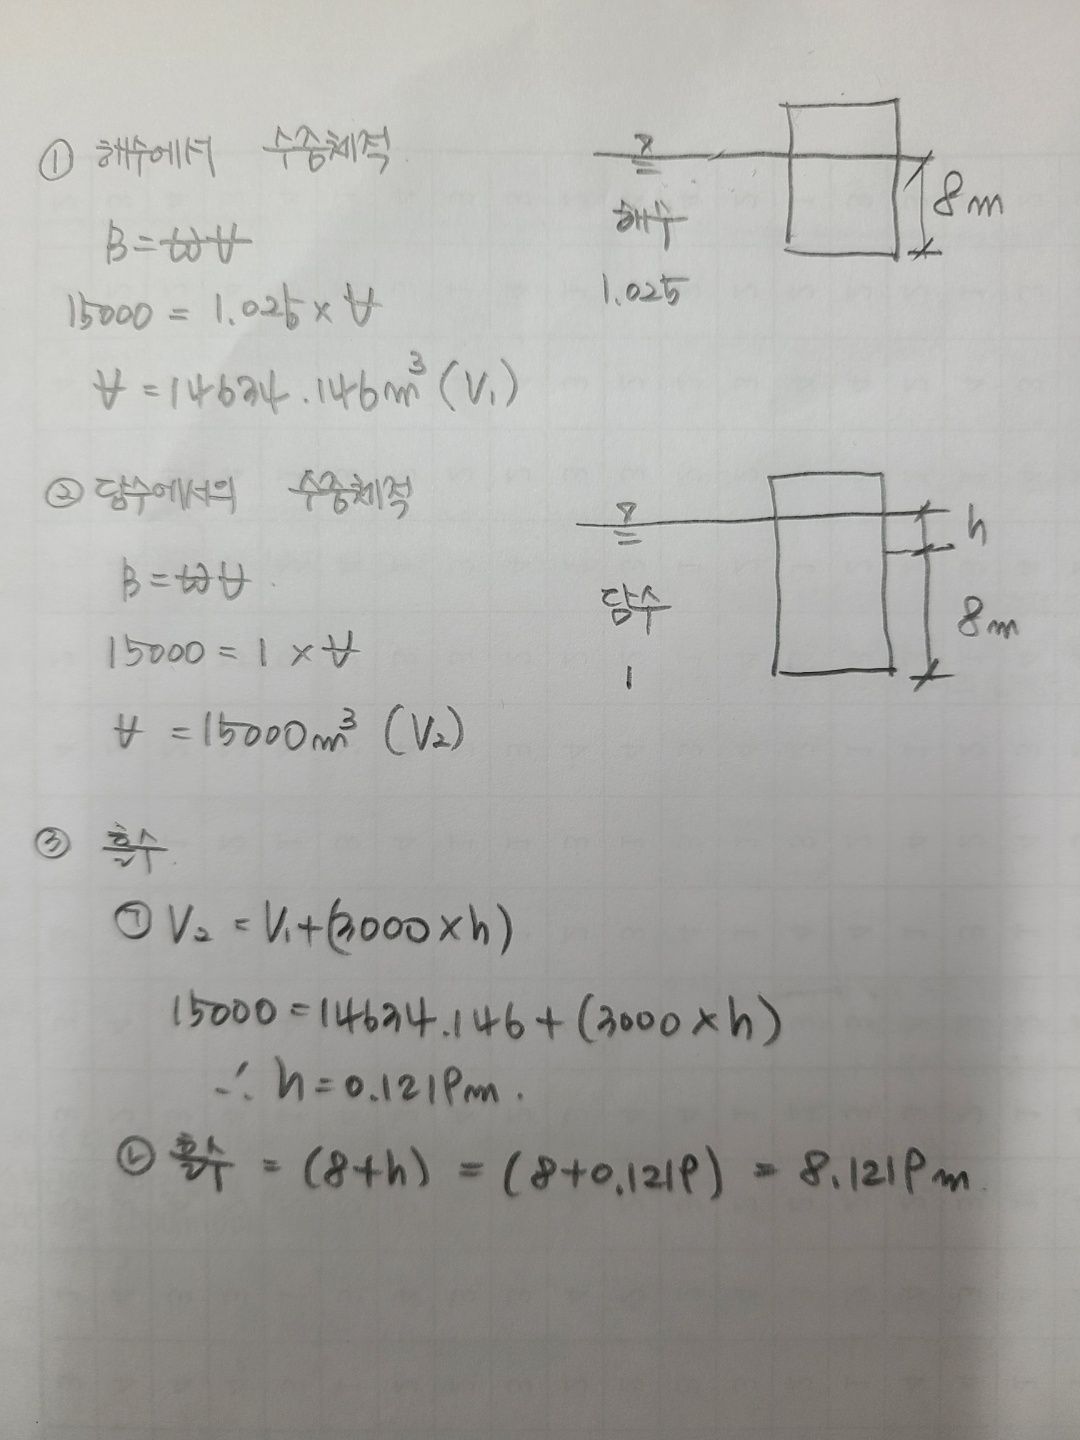 ① 해수에서 수중체적
B = ωV
15000 = 1.025 × V
V = 14634.146m³ (V₁)
해수
1.025
8m
② 담수에서의 수중체적
B = ωV.
15000 = 1 × V
V = 15000m³ (V₂)
담수
1
h
8m
③ 흘수.
㉠ V₂ = V₁+(3000×h)
15000 = 14634.146 + (3000×h)
∴ h = 0.1219m.
㉡ 흘수 = (8+h) = (8+0.1219) = 8.1219m.